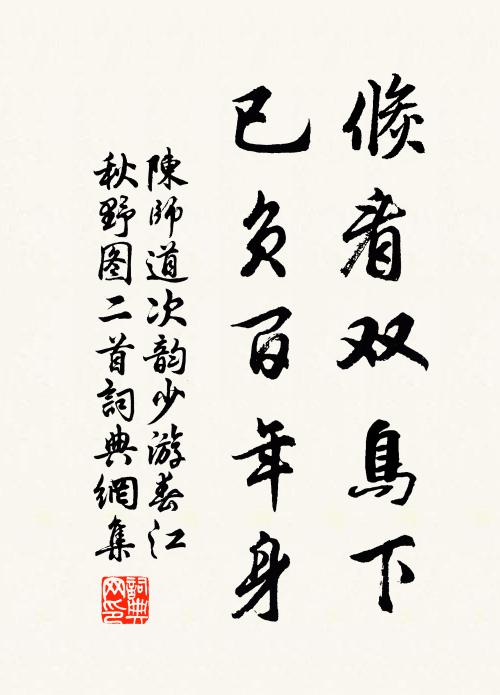 倐看双鳥下
已负百年身
陳師道次韵少游春江
秋野图二首詞典網集
詞典网印